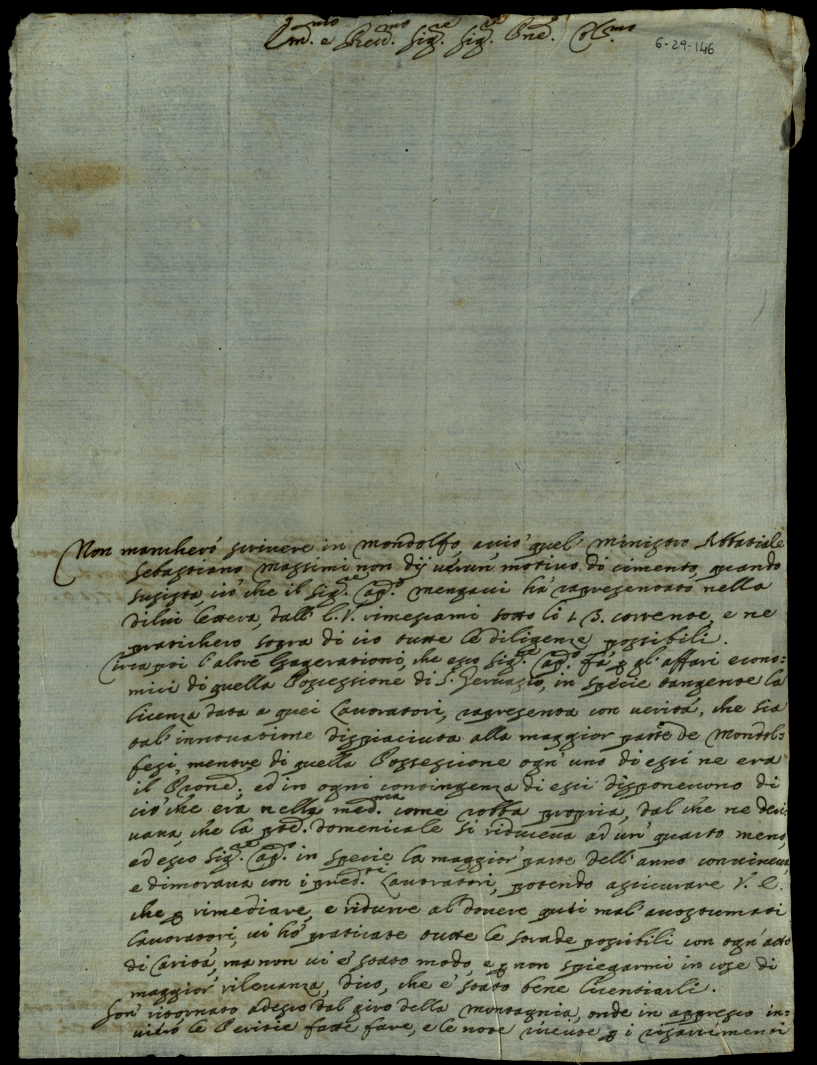 Ill.mo e Rev.mo Sig.re Sig.re P.ne Col.mo
6-29-146
Non mancherò scrivere in Mondolfo, acciò quel Ministro Abbatiale
Sebastiano Massimi non dij verun' motivo di cimento, quando
susista, ciò che il Sig.re Cap.o Mengacci hà rapresentato nella
di lui lettera, dall' V. rimessami sotto li 13. corrente, e ne
praticherò sopra di ciò tutte le diligenze possibili.
Circa poi l'altre Esagerationi, che esso Sig.re Cap.o fà p gl'affari econo=
mici di quella Possessione di S. Gervasio, in specie tangente la
licenza data a quei Lavoratori, rapresenta con verità, che sia
tal' innovatione dispiaciuta alla maggior parte de Mondol=
fesi, mentre di quella Possessione ogn' uno di essi ne era
il Prone, ed in ogni contingenza di essi disponevono di
ciò che era nella med.ma come robba propria, dal che ne deri=
vava, che la p.te domenicale si riduceva ad un' quarto meno,
ed esso Sig.re Cap.o in specie la maggior parte dell' anno conviveva,
e dimorava con i pred.ti Lavoratori, potendo assicurare V.
che p rimediare, e ridurre al dovere quei mal' accostumati
Lavoratori, vi hò praticate tutte le strade possibili con ogn' atto
di Carità, ma non vi è stato modo, e p non spiegarmi in cose di
maggior rilevanza, dico, che è stato bene licentiarli.
Son' ritornato adesso dal giro della Montagnia, onde in appresso in=
viarò le Peritie fatte fare, e le note ricevute p i risarcimenti